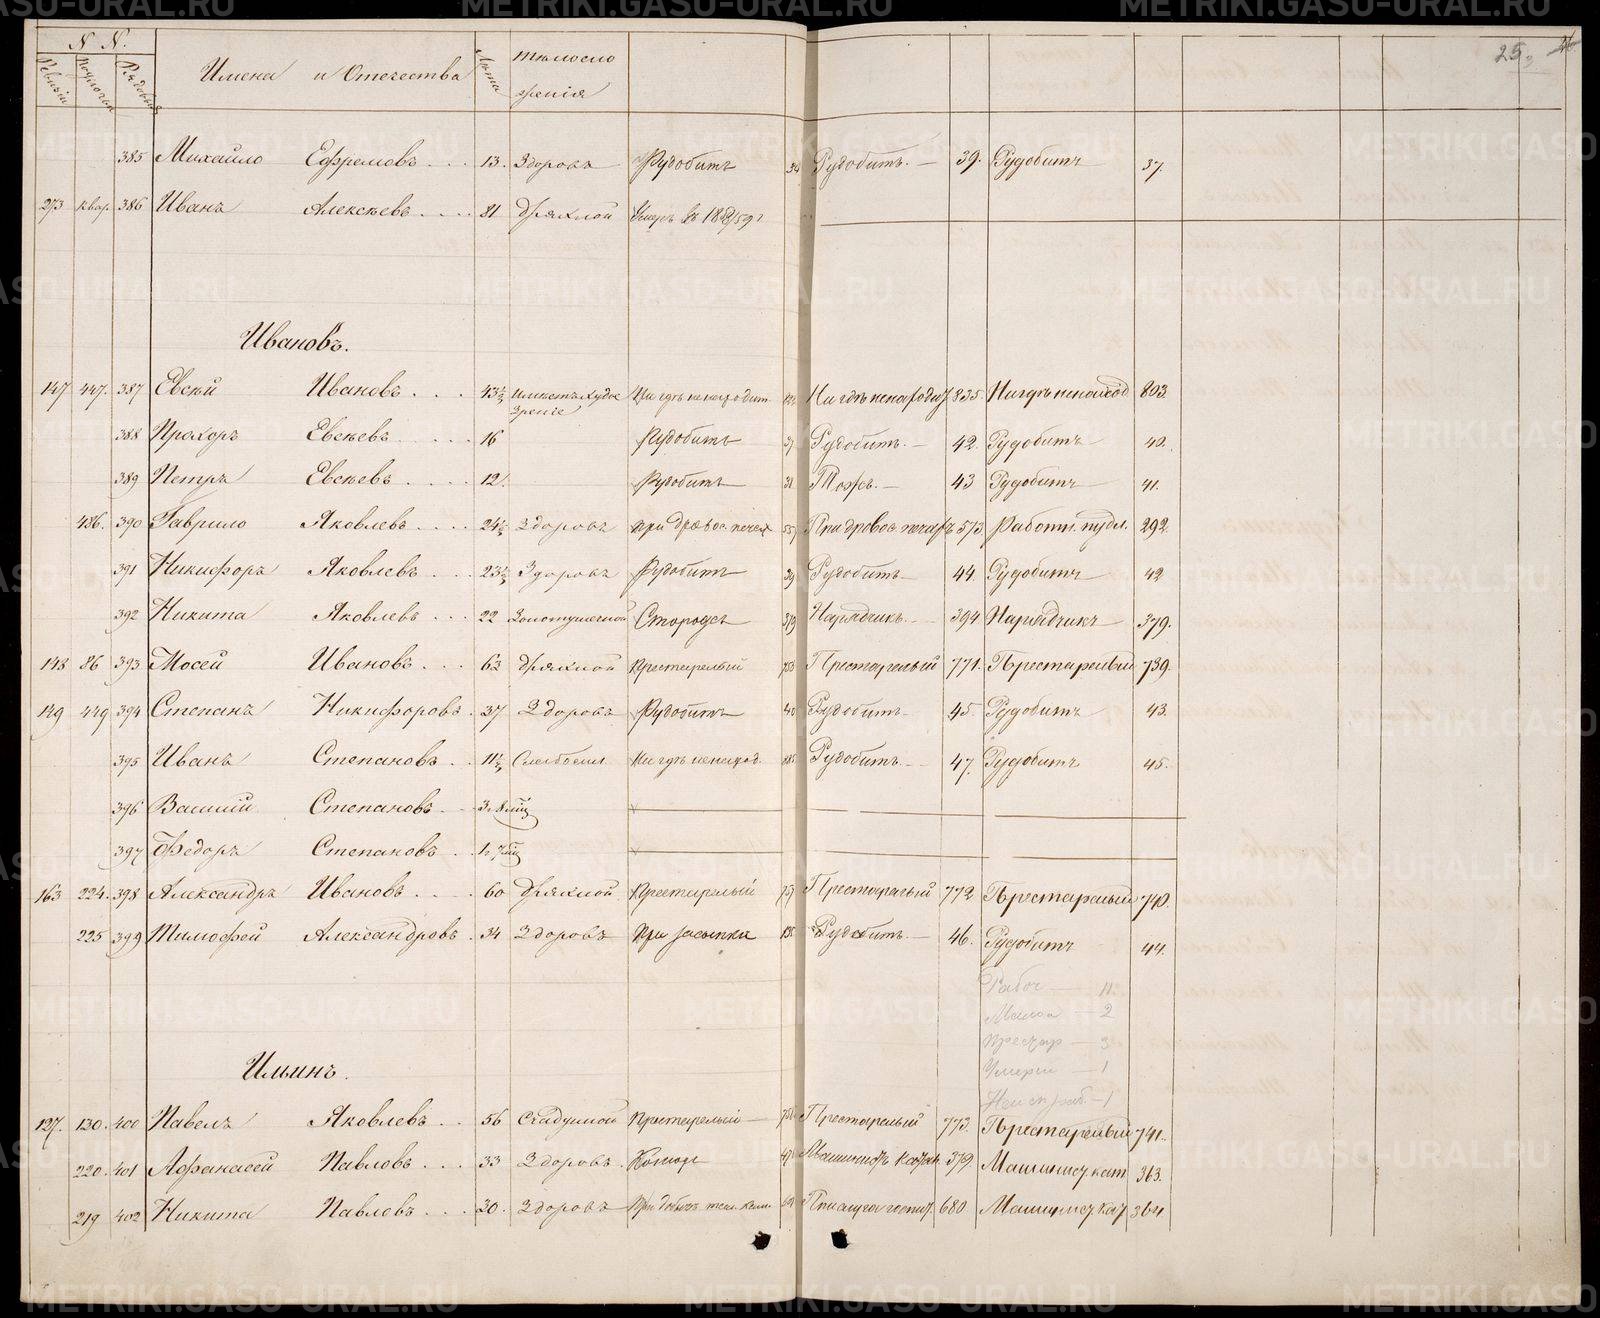 25. 26
N N.
Ревизіи Рядовые Имена и Отечества Лѣта тѣлосложенія
385 Михайло Ефремовъ 13. Здоровъ Рудобитъ 34 Рудобитъ. — 39. Рудобитъ 37.
273 квар. 386 Иванъ Алексѣевъ 81 Дряхлой Умеръ въ 1858/59 г
Ивановъ.
147 447. 387 Евсѣй Ивановъ 43½ имѣетъ худое зрѣніе Ни гдѣ не находит Ни гдѣ не находит 835. Нигдѣ ненаход 803.
388 Прохоръ Евсѣевъ 16 Рудобитъ 37 Рудобитъ. — 42. Рудобитъ 40.
389 Петръ Евсѣевъ 12. Рудобитъ 38 Тожъ. — 43 Рудобитъ 41.
436. 390 Гаврило Яковлевъ 24½ Здоровъ при дровос. печах 557 При дровос. печахъ 573. Работн. пудл. 292.
391 Никифоръ Яковлевъ 23½ Здоровъ Рудобитъ 39 Рудобитъ 44. Рудобитъ 42
392 Никита Яковлевъ 22 Золотушной Сторожъ 379 Нарядчикъ 394 Нарядчикъ 379.
148 86 393 Мосей Ивановъ 63 Дряхлой Престарелый 753 Престарелый 771. Престарелый 739.
149 449 394 Степанъ Никифоровъ 37 Здоровъ Рудобитъ 40 Рудобитъ 45. Рудобитъ 43.
395 Иванъ Степановъ 11½ Слабосил. Ни гдѣ не наход. Рудобитъ 47. Рудобитъ 45.
396 Василій Степановъ 3 г. 8 мѣс
397 Федоръ Степановъ 1 г. 7 мѣс
163 224. 398 Александръ Ивановъ 60 Дряхлой Престарелый 757 Престарелый 772 Престарелый 740.
225 399 Тимофей Александровъ 34 Здоровъ при засыпке Рудобитъ. — 46. Рудобитъ 44.
Рабоч — 11.
Малол — 2
Престар — 3
Умерши — 1
Неиспраб. — 1
Ильинъ.
127. 130. 400 Павелъ Яковлевъ 56 Престарелый Престарелый 773. Престарелый 741.
220. 401 Афанасей Павловъ 33 Здоровъ. Конюх Машинистъ 379 Машинис. кат 363.
219 402 Никита Павловъ 30. Здоровъ При добычѣ 680. Машинис. кат 364
METRIKI.GASO-URAL.RU